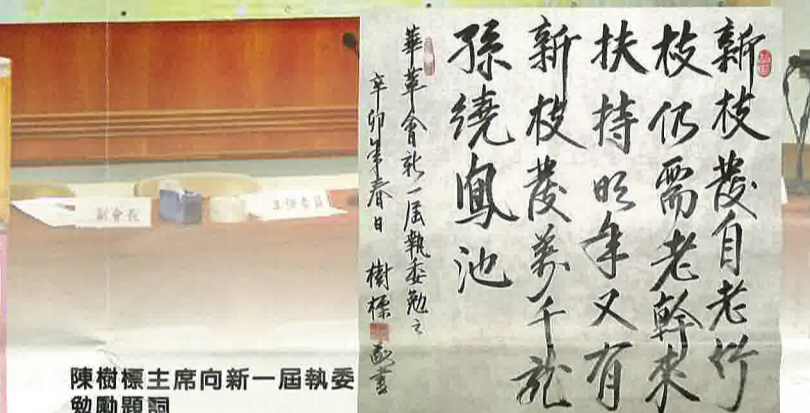 新枝發自老竹
枝仍需老幹來
扶持明年又有
新枝發萬千龍
孫繞鳳池
華革會新一届執委勉之
辛卯年春日 樹標 敬書
副會長
主任委員
陳樹標主席向新一屆執委
勉勵題詞